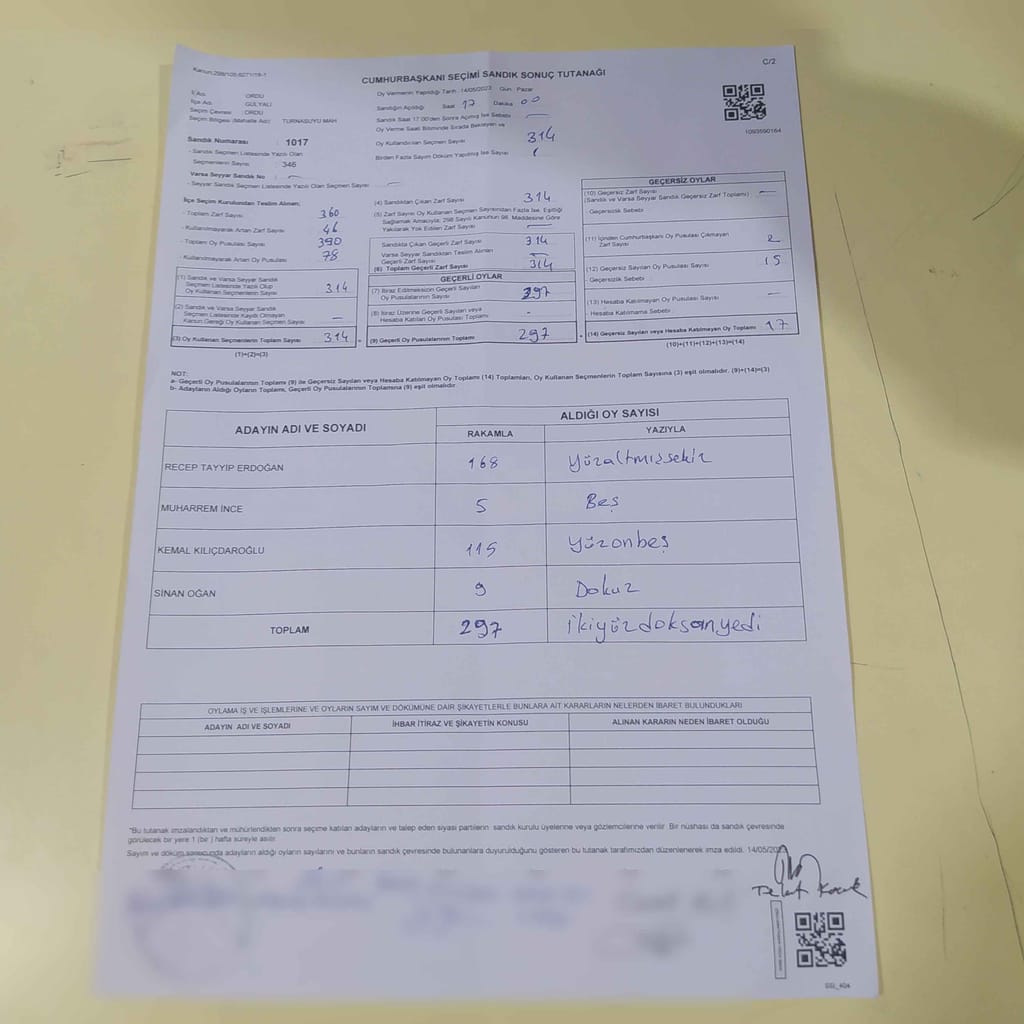 CUMHURBAŞKANI SEÇİMİ SANDIK SONUÇ TUTANAĞI
C/2
İl Adı : ORDU
İlçe Adı : GÜLYALI
Seçim Çevresi : ORDU
Seçim Bölgesi (Mahalle Adı) : TURNASUYU MAH
Oy Vermenin Yapıldığı Tarih : 14/05/2023 Gün : Pazar
Sandığın Açıldığı Saat 17 Dakika 00
Sandık Saat 17:00'den Sonra Açılmış İse Sebebi —
Oy Verme Saati Bitiminde Sırada Bekleyen ve
Oy Kullandırılan Seçmen Sayısı 314
Birden Fazla Sayım Döküm Yapılmış İse Sayısı
1093590164
Sandık Numarası : 1017
- Sandık Seçmen Listesinde Yazılı Olan
Seçmenlerin Sayısı : 346
Varsa Seyyar Sandık No : —
- Seyyar Sandık Seçmen Listesinde Yazılı Olan Seçmen Sayısı : —
İlçe Seçim Kurulundan Teslim Alınan;
- Toplam Zarf Sayısı : 360
- Kullanılmayarak Artan Zarf Sayısı : 46
- Toplam Oy Pusulası Sayısı : 390
- Kullanılmayarak Artan Oy Pusulası : 78
(1) Sandık ve Varsa Seyyar Sandık
Seçmen Listesinde Yazılı Olup
Oy Kullanan Seçmenlerin Sayısı 314
(2) Sandık ve Varsa Seyyar Sandık
Seçmen Listesinde Kayıtlı Olmayan
Kanun Gereği Oy Kullanan Seçmen Sayısı —
(3) Oy Kullanan Seçmenlerin Toplam Sayısı 314
(1)+(2)=(3)
(4) Sandıktan Çıkan Zarf Sayısı 314
(5) Zarf Sayısı Oy Kullanan Seçmen Sayısından Fazla İse, Eşitliği
Sağlamak Amacıyla; 298 Sayılı Kanunun 98. Maddesine Göre
Yakılarak Yok Edilen Zarf Sayısı —
Sandıkta Çıkan Geçerli Zarf Sayısı 314
Varsa Seyyar Sandıktan Teslim Alınan
Geçerli Zarf Sayısı —
(6) Toplam Geçerli Zarf Sayısı 314
GEÇERLİ OYLAR
(7) İtiraz Edilmeksizin Geçerli Sayılan
Oy Pusulalarının Sayısı 297
(8) İtiraz Üzerine Geçerli Sayılan veya
Hesaba Katılan Oy Pusulası Toplamı -
(9) Geçerli Oy Pusulalarının Toplamı 297
GEÇERSİZ OYLAR
(10) Geçersiz Zarf Sayısı
(Sandık ve Varsa Seyyar Sandık Geçersiz Zarf Toplamı) —
Geçersizlik Sebebi
(11) İçinden Cumhurbaşkanı Oy Pusulası Çıkmayan
Zarf Sayısı 2
(12) Geçersiz Sayılan Oy Pusulası Sayısı 15
Geçersizlik Sebebi
(13) Hesaba Katılmayan Oy Pusulası Sayısı —
Hesaba Katılmama Sebebi
(14) Geçersiz Sayılan veya Hesaba Katılmayan Oy Toplamı 17
(10)+(11)+(12)+(13)=(14)
NOT:
a- Geçerli Oy Pusulalarının Toplamı (9) ile Geçersiz Sayılan veya Hesaba Katılmayan Oy Toplamı (14) Toplamları, Oy Kullanan Seçmenlerin Toplam Sayısına (3) eşit olmalıdır. (9)+(14)=(3)
b- Adayların Aldığı Oyların Toplamı, Geçerli Oy Pusulalarının Toplamına (9) eşit olmalıdır
ADAYIN ADI VE SOYADI ALDIĞI OY SAYISI
RAKAMLA YAZIYLA
RECEP TAYYİP ERDOĞAN 168 Yüzaltmışsekiz
MUHARREM İNCE 5 Beş
KEMAL KILIÇDAROĞLU 115 Yüzonbeş
SİNAN OĞAN 9 Dokuz
TOPLAM 297 İkiyüzdoksanyedi
OYLAMA İŞ VE İŞLEMLERİNE VE OYLARIN SAYIM VE DÖKÜMÜNE DAİR ŞİKAYETLERLE BUNLARA AİT KARARLARIN NELERDEN İBARET BULUNDUKLARI
ADAYIN ADI VE SOYADI İHBAR İTİRAZ VE ŞİKAYETİN KONUSU ALINAN KARARIN NEDEN İBARET OLDUĞU
*Bu tutanak imzalandıktan ve mühürlendikten sonra seçime katılan adayların ve talep eden siyasi partilerin sandık kurulu üyelerine veya gözlemcilerine verilir. Bir nüshası da sandık çevresinde
görülecek bir yere 1 (bir) hafta süreyle asılır.
Sayım ve döküm sonucunda adayların aldığı oyların sayılarını ve bunların sandık çevresinde bulunanlara duyurulduğunu gösteren bu tutanak tarafımızdan düzenlenerek imza edildi.